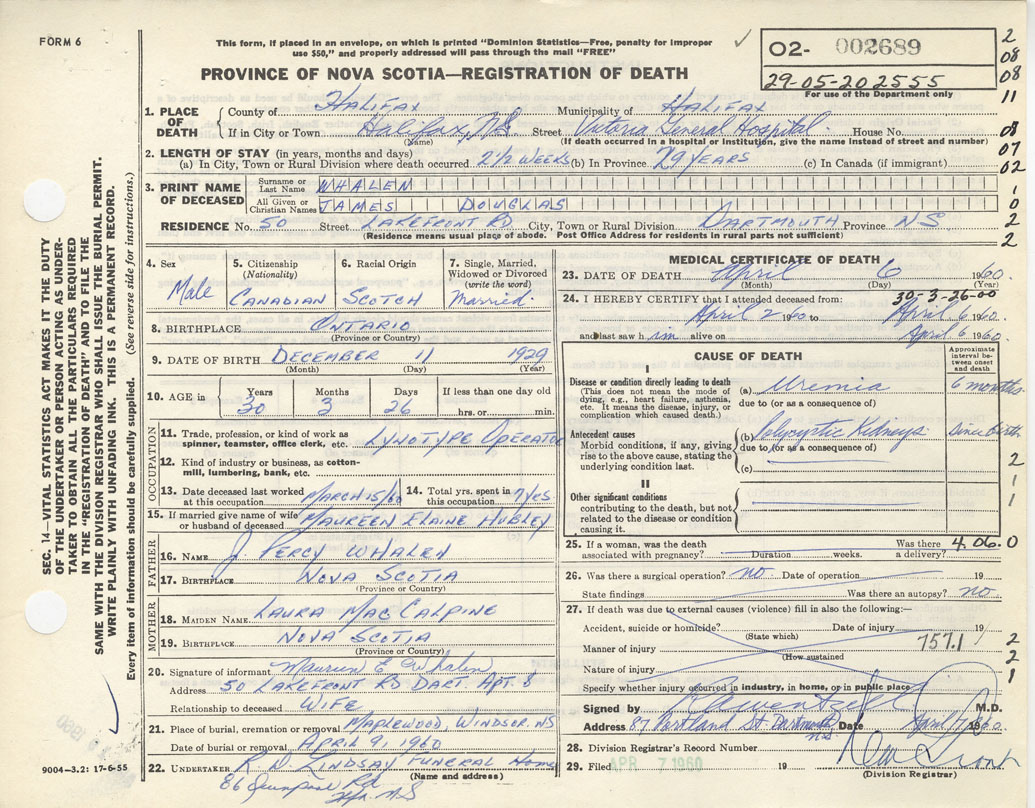 FORM 6
This form, if placed in an envelope, on which is printed "Dominion Statistics—Free, penalty for improper
use $50," and properly addressed will pass through the mail "FREE"
PROVINCE OF NOVA SCOTIA—REGISTRATION OF DEATH
✓
O2- 002689
29-05-202555
For use of the Department only
2
08
08
11
08
07
02
1
0
2
2
1. PLACE OF DEATH
County of HALIFAX Municipality of HALIFAX
If in City or Town Halifax, N.S. Street Victoria General Hospital House No.
(Name) (If death occurred in a hospital or institution, give the name instead of street and number)
2. LENGTH OF STAY (in years, months and days)
(a) In City, Town or Rural Division where death occurred 2½ WEEKS (b) In Province 29 YEARS (c) In Canada (if immigrant)
3. PRINT NAME OF DECEASED
Surname or Last Name WHALEN
All Given or Christian Names JAMES DOUGLAS
RESIDENCE No. 50 Street LAKEFRONT RD City, Town or Rural Division DARTMOUTH Province NS
(Residence means usual place of abode. Post Office Address for residents in rural parts not sufficient)
4. Sex Male
5. Citizenship (Nationality) CANADIAN
6. Racial Origin SCOTCH
7. Single, Married, Widowed or Divorced (write the word) Married.
8. BIRTHPLACE ONTARIO
(Province or Country)
9. DATE OF BIRTH DECEMBER 11 1929
(Month) (Day) (Year)
10. AGE in Years 30 Months 3 Days 26 If less than one day old hrs. or min.
OCCUPATION
11. Trade, profession, or kind of work as spinner, teamster, office clerk, etc. LYNOTYPE OPERATOR
12. Kind of industry or business, as cotton-mill, lumbering, bank, etc.
13. Date deceased last worked at this occupation MARCH 15/60
14. Total yrs. spent in this occupation 7 YRS
15. If married give name of wife or husband of deceased MAUREEN ELAINE HUBLEY
FATHER
16. NAME J. PERCY WHALEN
17. BIRTHPLACE NOVA SCOTIA
(Province or Country)
MOTHER
18. MAIDEN NAME LAURA MAC CALPINE
19. BIRTHPLACE NOVA SCOTIA
(Province or Country)
20. Signature of informant Maureen E Whalen
Address 50 LAKEFRONT RD DART. APT. 8
Relationship to deceased WIFE
21. Place of burial, cremation or removal MAPLEWOOD, WINDSOR, NS
Date of burial or removal APRIL 9, 1960
22. UNDERTAKER R N LINDSAY FUNERAL HOME
(Name and address)
86 Quinpool Rd
Hfx. N.S
MEDICAL CERTIFICATE OF DEATH
23. DATE OF DEATH April 6 1960.
(Month) (Day) (Year)
24. I HEREBY CERTIFY that I attended deceased from: 30-3-26-00
April 2 1960 to April 6 1960.
and last saw him alive on April 6 1960
CAUSE OF DEATH
Approximate interval between onset and death
I
Disease or condition directly leading to death
This does not mean the mode of dying, e.g., heart failure, asthenia, etc. It means the disease, injury, or complication which caused death.
(a) Uremia 6 months
due to (or as a consequence of)
Antecedent causes
Morbid conditions, if any, giving rise to the above cause, stating the underlying condition last.
(b) Polycystic Kidneys Since birth
due to (or as a consequence of)
(c)
II
Other significant conditions
contributing to the death, but not related to the disease or condition causing it.
2
1
1
25. If a woman, was the death associated with pregnancy? Duration weeks. Was there a delivery?
4.06.0
26. Was there a surgical operation? no Date of operation 19
State findings Was there an autopsy? no.
27. If death was due to external causes (violence) fill in also the following:—
Accident, suicide or homicide? Date of injury 19
(State which)
Manner of injury 757.1
(How sustained
Nature of injury
Specify whether injury occurred in industry, in home, or in public place
2
2
1
Signed by M.D.
Address 87 Portland St. Dartmouth NS Date April 7 1960.
28. Division Registrar's Record Number
29. Filed APR 7 1960 19
(Division Registrar)
SEC. 14—VITAL STATISTICS ACT MAKES IT THE DUTY
OF THE UNDERTAKER OR PERSON ACTING AS UNDER-
TAKER TO OBTAIN ALL THE PARTICULARS REQUIRED
IN THE "REGISTRATION OF DEATH" AND TO FILE THE
SAME WITH THE DIVISION REGISTRAR WHO SHALL ISSUE THE BURIAL PERMIT.
WRITE PLAINLY WITH UNFADING INK. THIS IS A PERMANENT RECORD.
Every item of information should be carefully supplied. (See reverse side for instructions.)
9004-3.2: 17-6-55